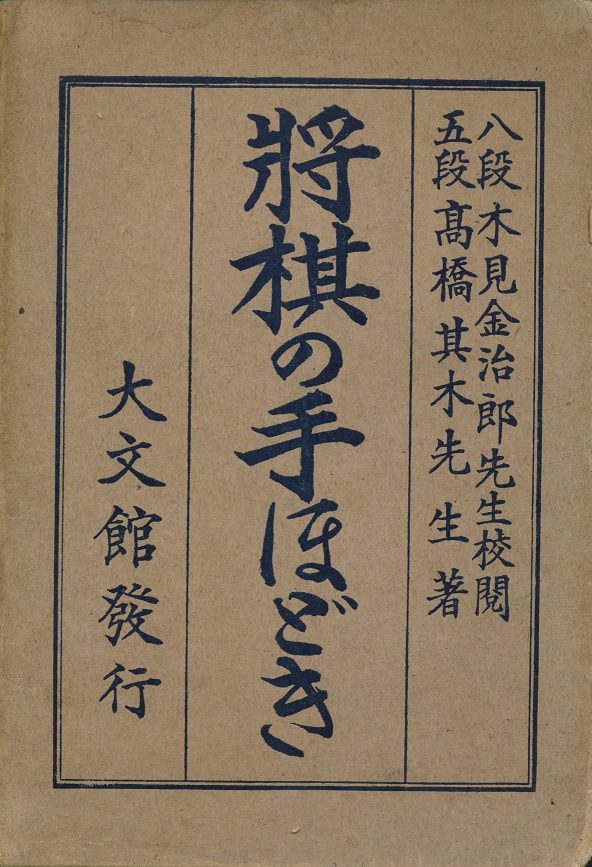 八段木見金治郎先生校閲
五段髙橋其木先生著
將棋の手ほどき
大文館發行